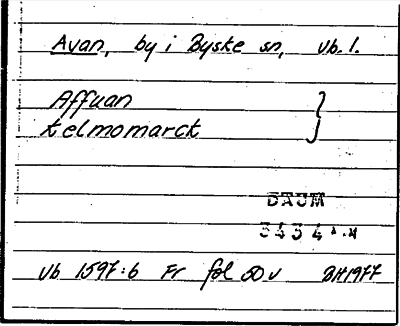 Avan, by i Byske sn, Vb. l.
Affuan
telmomarck
DAUM
3434
Vb 1597:6 Fr fol 50 v BH1977